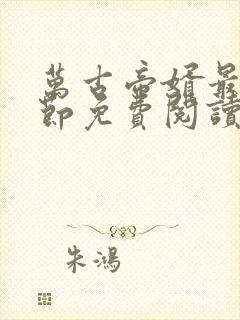 萬古帝婿最
節免費閱讀
朱鴻